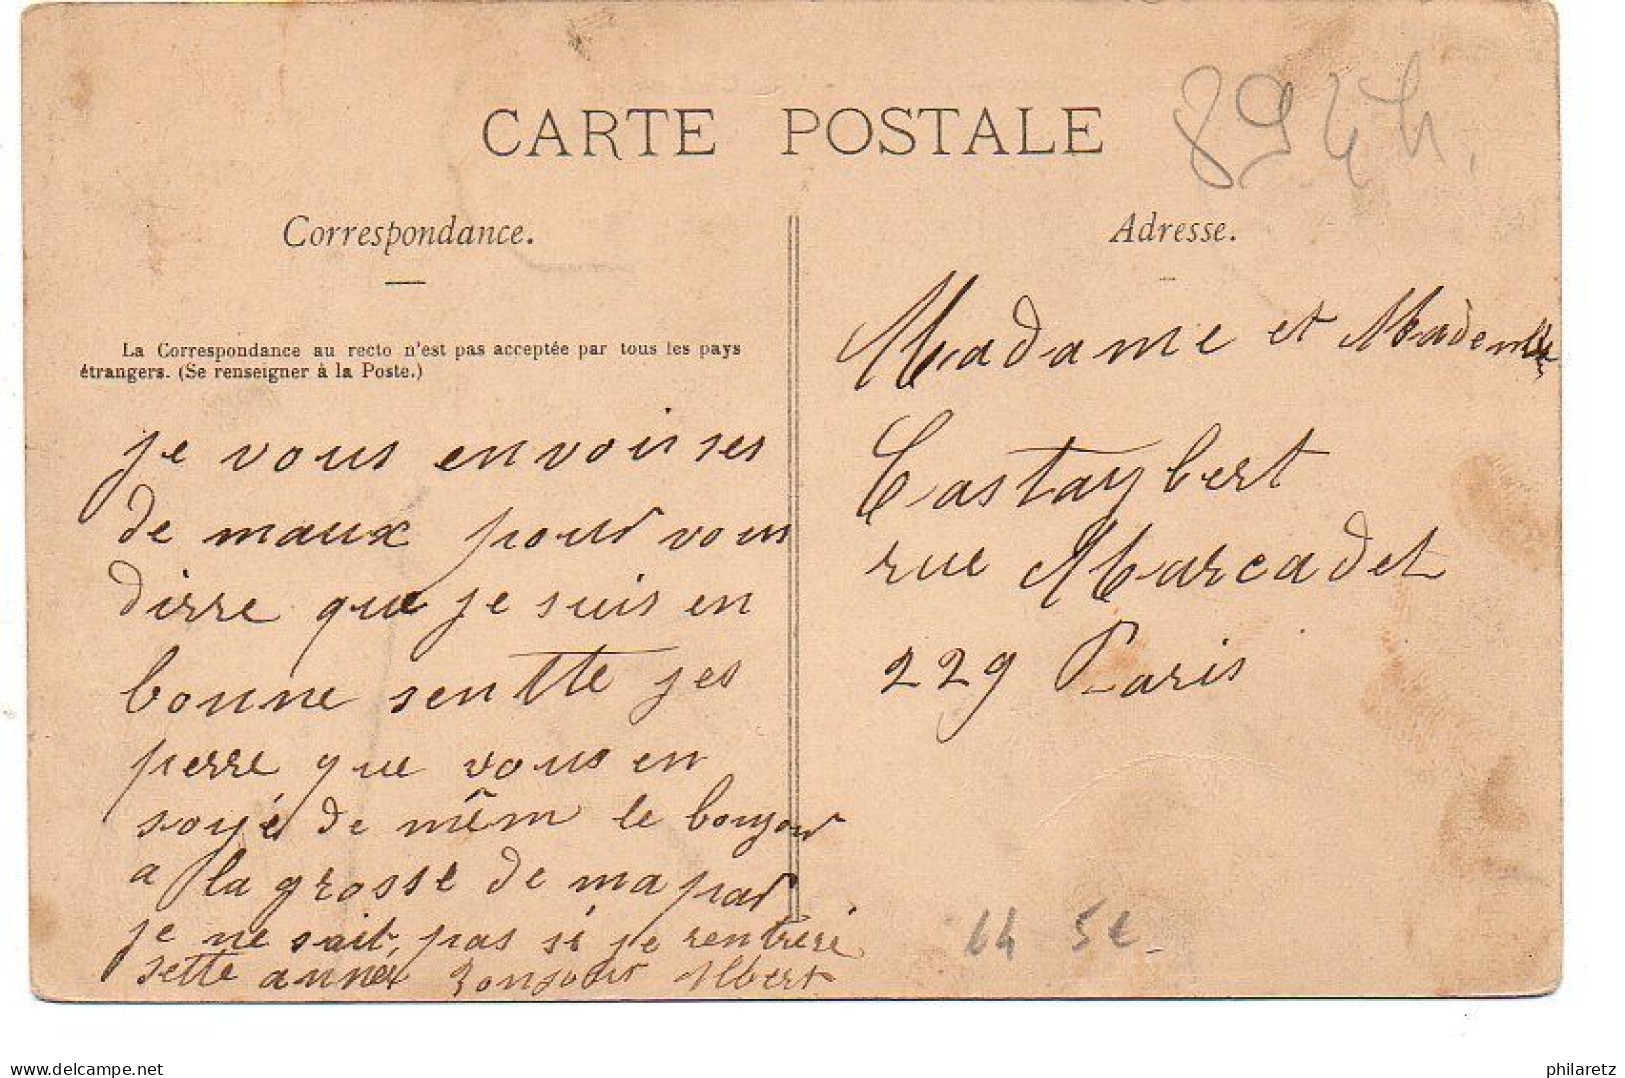 CARTE POSTALE
894h.
Correspondance.
Adresse.
La Correspondance au recto n'est pas acceptée par tous les pays
étrangers. (Se renseigner à la Poste.)
je vous envoii ses
de maux pour vous
dirre que je suis en
bonne sentte jes
perre que vous en
soyé de mêm le bonjour
a la grosse de ma par
je ne sait pas si je rentreré
sette anné bonjour Albert
Madame et Mademlle
Castaybert
rue Marcadet
229 Paris
5€
www.delcampe.net
philaretz